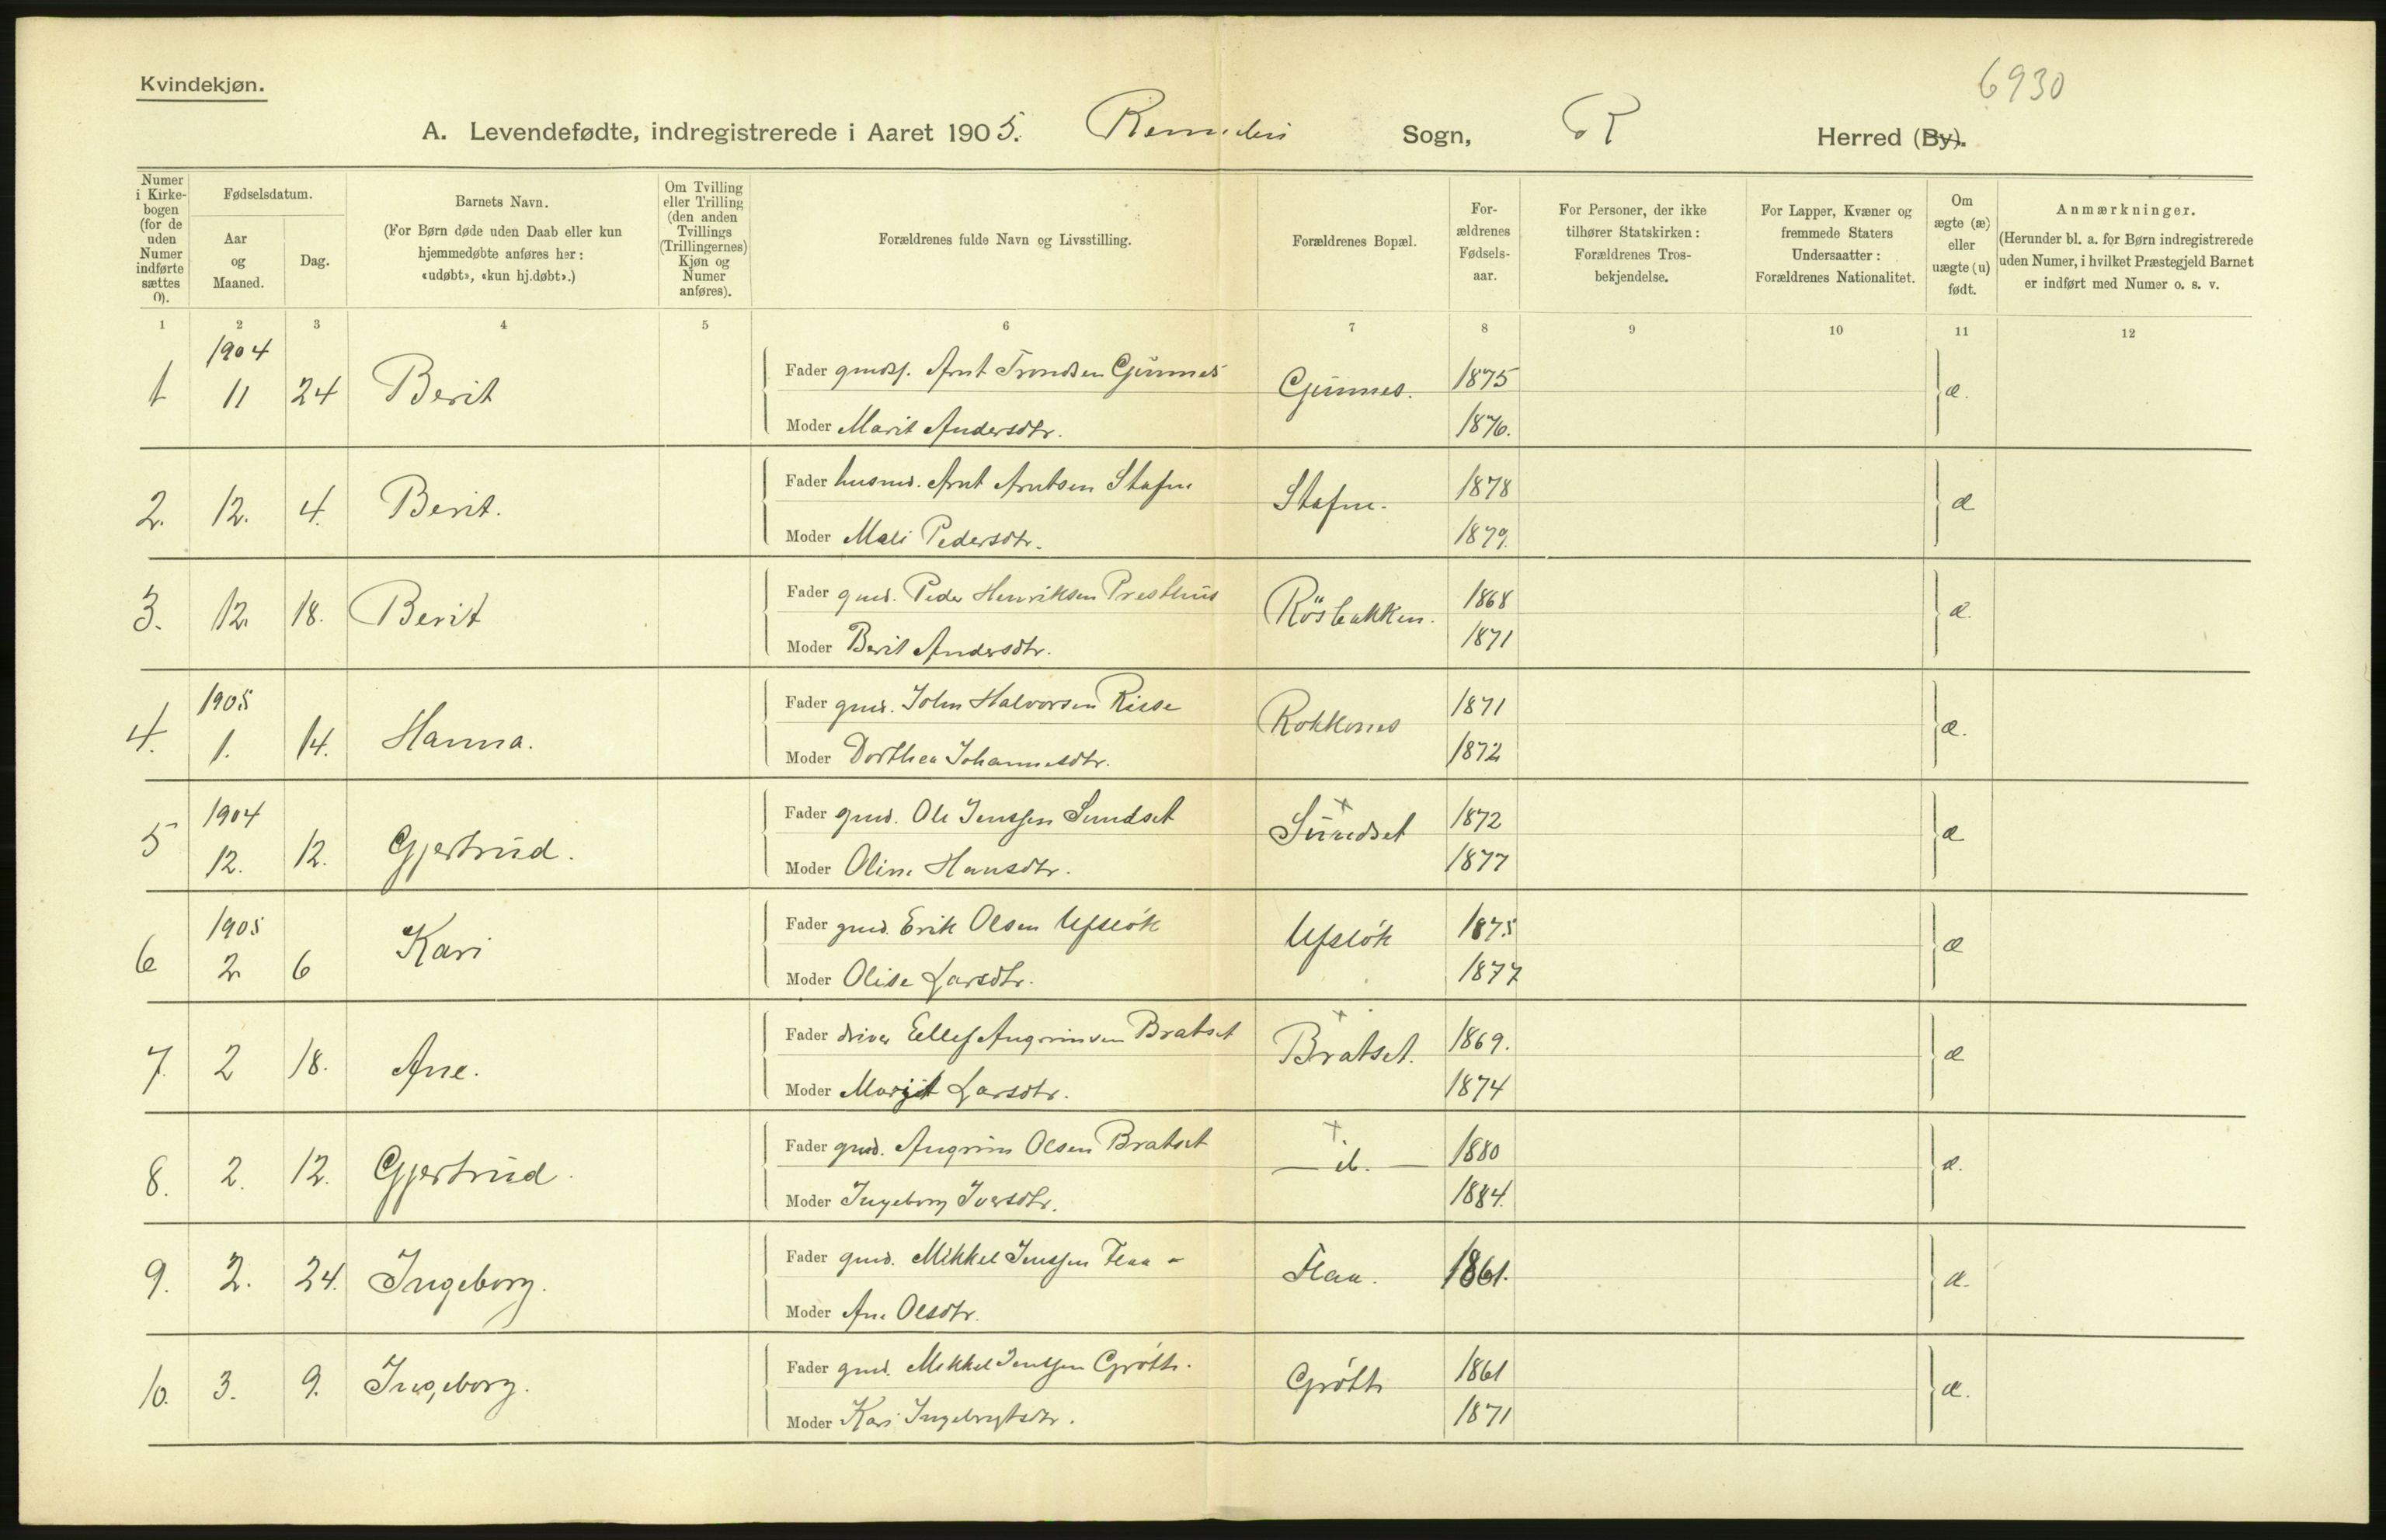 6930
Kvindekjøn.
A. Levendefødte, indregistrerede i Aaret 1905. Sogn, R Herred (By).
Numer i Kirke-bogen (for de uden Numer indførte sættes 0).
Fødselsdatum.
Aar og Maaned.
Dag.
Barnets Navn.
(For Børn døde uden Daab eller kun hjemmedøbte anføres her: «udøbt», «kun hj.døbt».)
Om Tvilling eller Trilling (den anden Tvillings (Trillingernes) Kjøn og Numer anføres).
Forældrenes fulde Navn og Livsstilling.
Forældrenes Bopæl.
For-ældrenes Fødsels-aar.
For Personer, der ikke tilhører Statskirken: Forældrenes Tros-bekjendelse.
For Lapper, Kvæner og fremmede Staters Undersaatter: Forældrenes Nationalitet.
Om ægte (æ) eller uægte (u) født.
Anmærkninger.
(Herunder bl. a. for Børn indregistrerede uden Numer, i hvilket Præstegjeld Barnet er indført med Numer o. s. v.
1 2 3 4 5 6 7 8 9 10 11 12
1904
1 11 24 Berit Fader Arnt Trondsen Gjinnes Gjinnes. 1875 æ.
Moder Marit Andersdtr. 1876.
2. 12. 4. Berit. Fader husmd. Arnt Arntsen Stafne Stafne. 1878 æ
Moder Mali Pedersdtr. 1879.
3. 12. 18. Berit Fader gmd. Peder Henriksen Presthus Rösbakken. 1868 æ.
Moder Berit Andersdtr. 1871
1905
4. 1. 14. Hanna. Fader gmd. John Halvorsen Risse Rokkones 1871 æ.
Moder Dorthea Johannesdtr. 1872
1904
5 12. 12. Gjertrud. Fader gmd. Ole Jenssen Sundset Sundset 1872 æ
Moder Oline Hansdtr. 1877
1905
6 2 6 Kari Fader gmd. Erik Olsen Ufslök Ufslök 1875 æ
Moder Olise Larsdtr. 1877
7. 2 18. Ane. Fader driver Ellef Angrimsen Bratset Bratset. 1869. æ
Moder Marjit Larsdtr. 1874
8. 2. 12. Gjertrud. Fader gmd. Angrim Olsen Bratset — id. — 1880 æ.
Moder Ingeborg Iversdtr. 1884.
9. 2. 24. Ingeborg. Fader gmd. Mikkel Jenssen Flaa - Flaa. 1861. æ.
Moder Ane Olsdtr.
10. 3. 9. Ingeborg. Fader gmd. Mikkel Jenssen Grötte. Grötte 1861 æ.
Moder Kari Ingebrigtsdtr. 1871